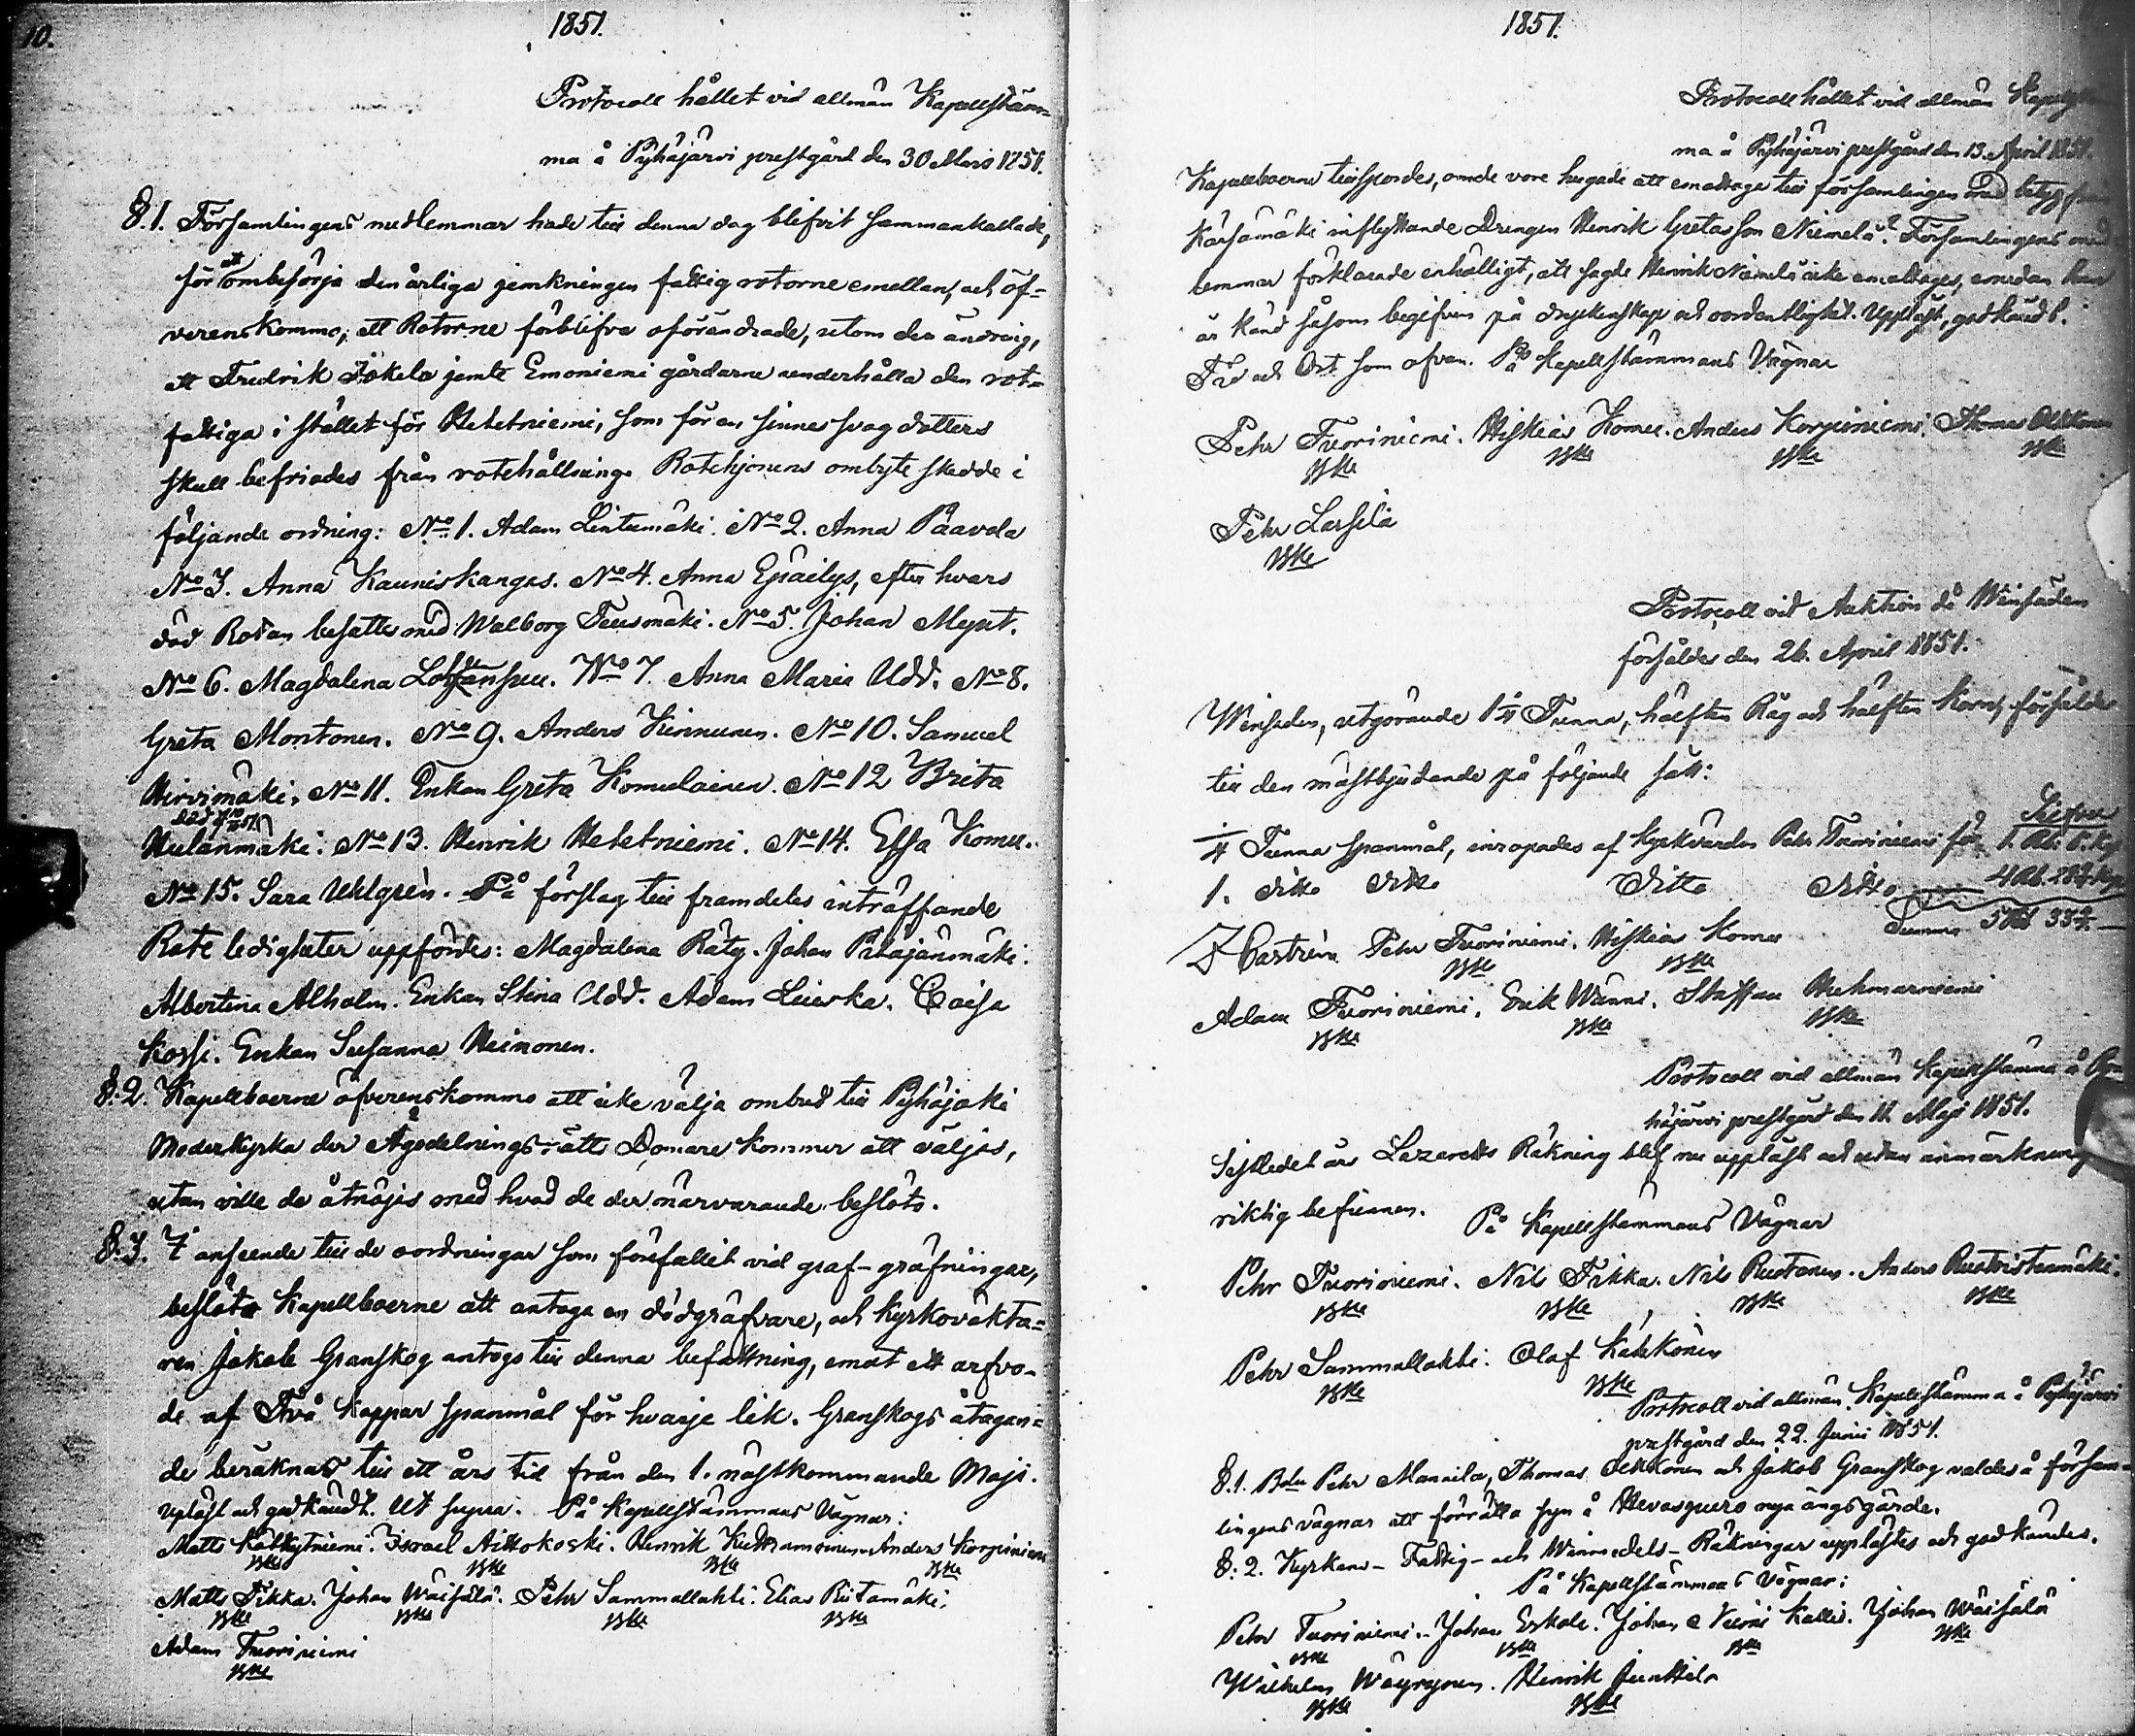 10.
1851.
Protocoll hållet vid allmän Kapellstäm=
ma å Pyhäjärvi prestgård den 30 Mars 1851.
§. 1. Församlingens medlemmar hade till denna dag blifvit sammankallade,
för att ombesörja den årliga jemkningen fattig rotorne emellan, och öf=
verenskommo, att Rotorne förblifva oförändrade, utom den ändring,
att Fredrik Jökela jemte Emoniemi gårdarne underhålla den rot=
fattiga i stället för Hetetniemi, som för en sinnessvag dotters
skull befriades från rotehållning. Rotehjonens ombyte skedde i
följande ordning: No 1. Adam Lintumäki. No 2. Anna Paavola
No 3. Anna Kauniskangas. No 4. Anna Epäilys, efter hvars
död Rotan besattes med Walborg Teusmäki. No 5. Johan Mynt.
No 6. Magdalena No 7. Anna Maria Udd. No 8.
Greta Montonen. No 9. Anders Kinnunen. No 10. Samuel
Hirvimäki. No 11. Enkan Greta Komulainen. No 12 Brita
död
Hulanmäki. No 13. Henrik Hetetniemi. No 14. Essa Komu.
No 15. Sara Uhlgrén. På förslag till framdeles inträffande
Rote ledigheter uppfördes: Magdalena Räty. Johan Pitäjänmäki.
Albertina Alholm. Enkan Stina Udd. Adam Leiviska. Caisa
Kossi. Enkan Susanna Heinonen.
§. 2. Kapellboerne öfverenskommo att icke välja ombud till Pyhäjoki
Moderkyrka der Ägodelnings-rätts Domare kommer att väljas,
utan ville de åtnöjas med hvad de der närvarande beslöto.
§. 3. I anseende till de oordningar som förefallit vid graf-gräfningar,
beslöto Kapellboerne att antaga en dödgräfvare, och kyrkovakta=
ren Jakob Granskog antogs till denna befattning, emot ett arfvo-
de af Två Kappar spanmål för hvarje lik. Granskogs åtagan=
de beräknas till ett års tid från den 1. nästkommande Maji.
Upläst och godkändt. Ut supra. På Kapellstämmans Vägnar:
Matts Kätkytniemi. Israel Aittokoski. Henrik Anders Korpiniemi
Matts Tikka. Johan Wäisälä. Pehr Sammallahti. Elias Ristamäki.
Adam Tuoriniemi
1851.
Protocoll hållet vid allmän
ma å Pyhäjärvi prestgård den 13. April 1851.
Kapellboerne tillspordes, om de vore hugade att emottaga till församlingen med betyg från
Kärsämäki inflyttande Drengen Henrik Gretasson Niemelä? Församlingens med
lemmar förklarade enhälligt, att sagde Henrik Niemelä icke emottages, emedan han
är känd såsom begifven på dryckenskap och oordentlighet. Uppläst, godkändt.
År och Ort som ofvan. På Kapellstämmans Vägnar
Pehr Tuoriniemi. Hiskias Komu. Anders Korpiniemi. Thomas
Pehr Lassila
Protocoll vid Auktion då Winsäden
försåldes den 26. April 1851.
Winsäden, utgörande 1¼ Tunna, hälften Råg och hälften Korn, försåldes
till den mästbjudande på följande sätt:
¼ Tunna spanmål, inropades af Kyrkvärden Pehr Tuoriniemi för
1. ditto ditto ditto ditto
Summa
Castrén. Pehr Tuoriniemi. Hiskias Komu
Adam Tuoriniemi. Erik Wänni. Staffan
Protocoll vid allmän Kapellstämma å Py=
häjärvi prestgård den 11. Maji 1851.
Sistledet års Lazaretts Räkning blef nu uppläst och utan anmärkning
riktig befunnen. På Kapellstämmans Vägnar
Pehr Tuoriniemi. Nils Tikka. Nils Ruotonen. Anders
Pehr Sammallahti. Olaf Kähkönen
Protocoll vid allmän Kapellstämma å Pyhäjärvi
prestgård den 22. Junii 1851.
§. 1. Pehr Mannila, Thomas och Jakob Granskog valdes å försam=
lingens vägnar att förrätta syn å nya ängsgärde.
§. 2. Kyrkans- Fattig- och Winnedels- Räkningar upplästes och godkändes.
På Kapellstämmans Vägnar:
Pehr Tuoriniemi. Johan Eskola. Johan Johan Wäisälä
Wilhelm Wäyrynen. Henrik Junttila